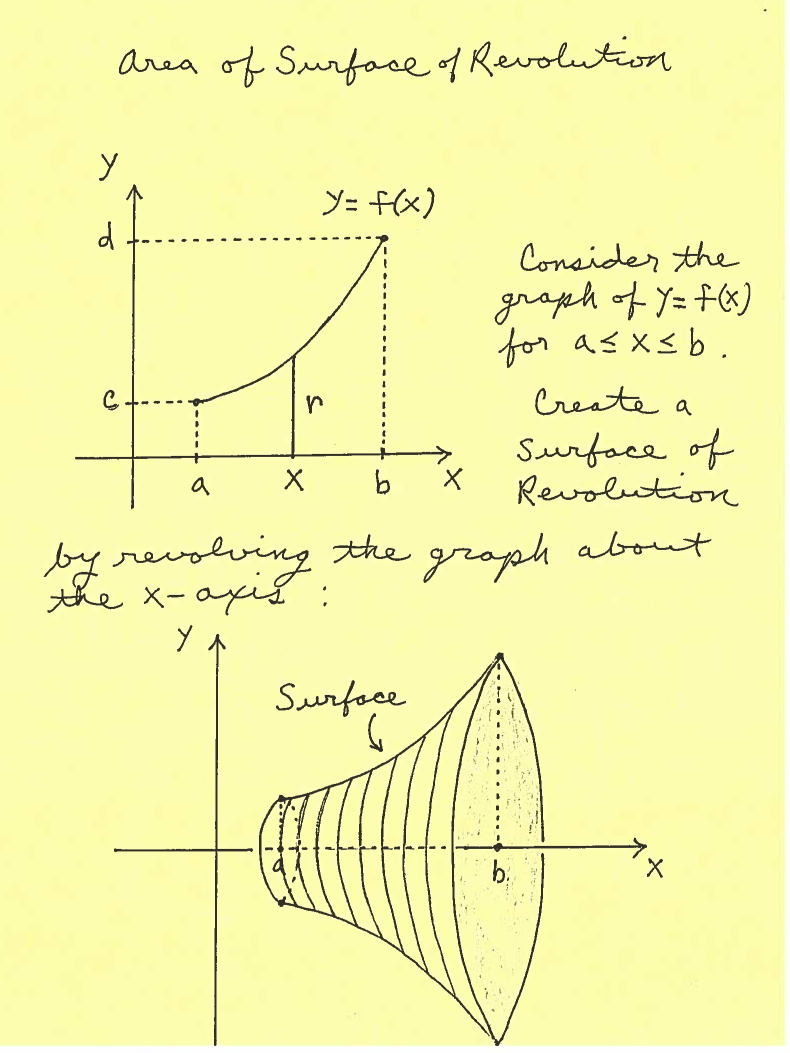 Area of Surface of Revolution
y
y = f(x)
d
c
r
a
x
b
x
Consider the
graph of y = f(x)
for a ≤ x ≤ b .
Create a
Surface of
Revolution
by revolving the graph about
the x-axis :
y
Surface
a
b
x